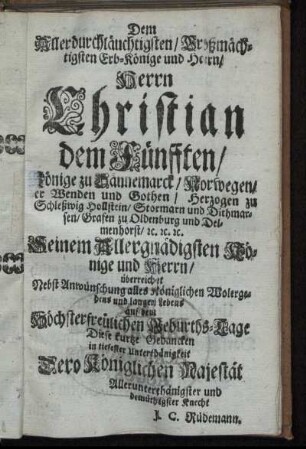 Dem
Allerdurchläuchtigsten/ Großmäch-
tigsten Erb-Könige und Herrn/
Herrn
Christian
dem Fünfften/
Könige zu Dannemarck/ Norwegen/
er Wenden und Gothen/ Herzogen zu
Schleßwig Hollstein/ Stormarn und Dithmar-
sen/ Grafen zu Oldenburg und Del-
menhorst/ ꝛc. ꝛc. ꝛc.
Seinem Allergnädigsten Kö-
nige und Herrn/
überreichet
Nebst Anwünschung alles Königlichen Wolerge-
hens und langen Lebens
auf dem
Höchsterfreulichen Gebuhrts-Tage
Diese kurtze Gedancken
in tieffester Unterthänigkeit
Dero Königlichen Majestät
Allerunterthänigster und
demüthigster Knecht
J. C. Rüdemann.